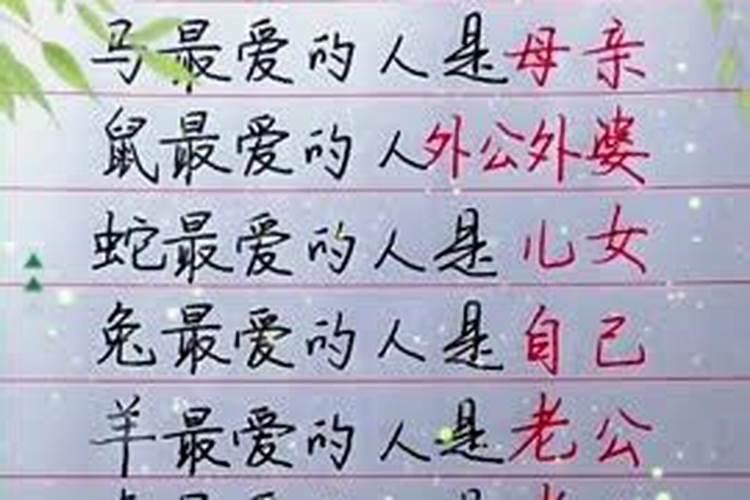 马最爱的人是母亲
鼠最爱的人外公外婆
蛇最爱的人是儿女
兔最爱的人是自己
羊最爱的人是老公
最爱的人是